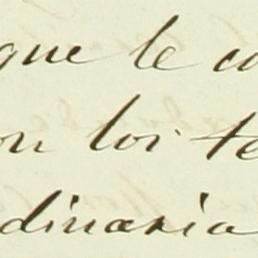 que le co
on los te
dinaria